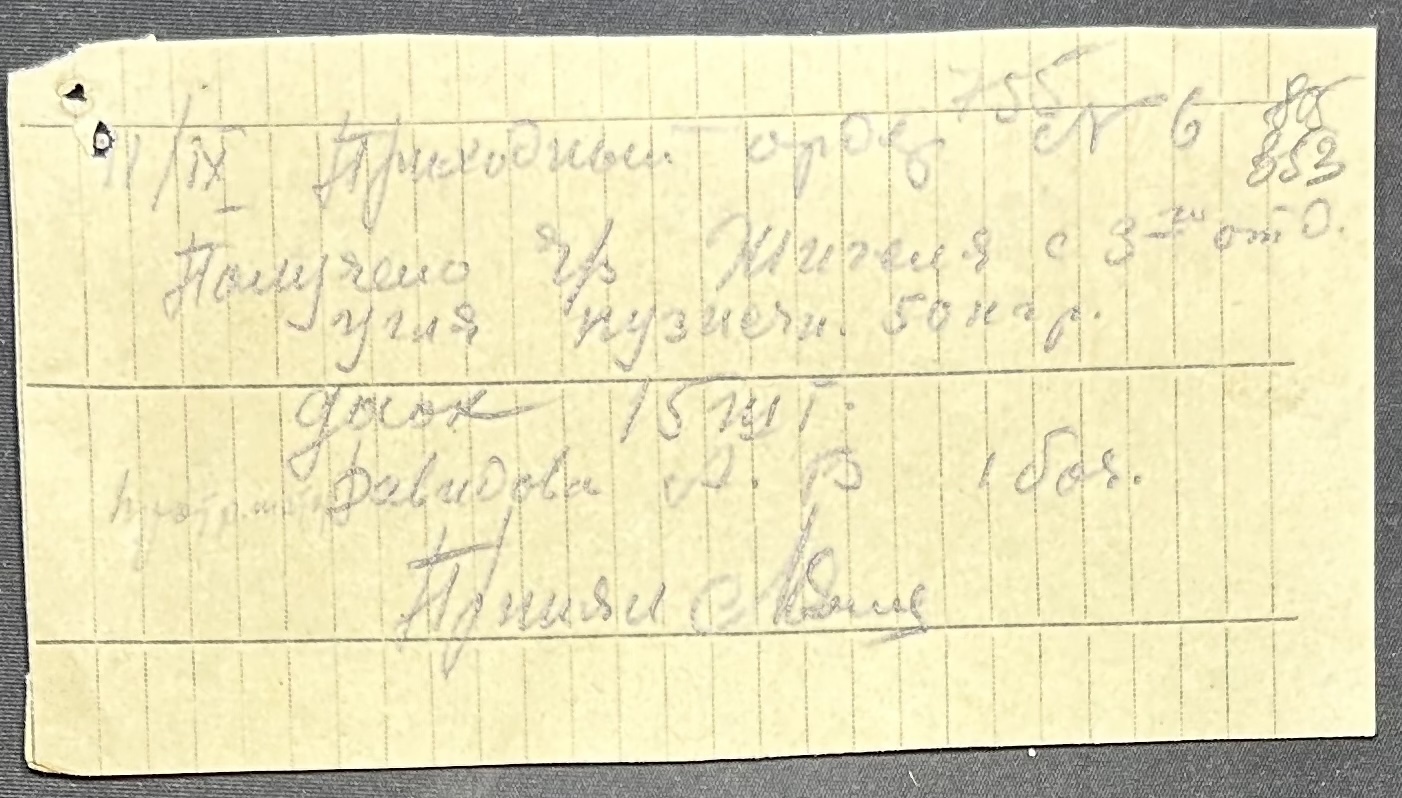 755 85
11/IX Приходный ордер № 6 853
Получено ч/з Жителя с 3го от О.
угля кузнечн. 50 кгр.
досок 15 шт.
Давидова А. В 1 боч.
Принял